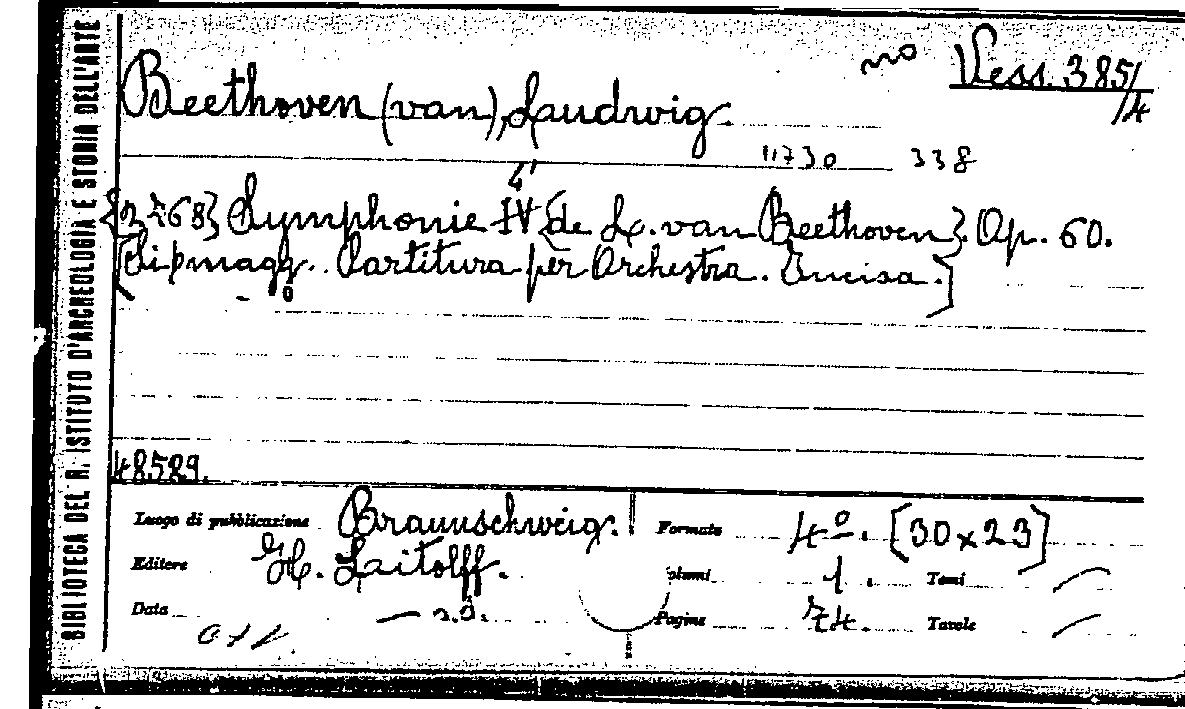 BIBLIOTECA DEL R. ISTITUTO D'ARCHEOLOGIA E STORIA DELL'ARTE
mo Vess. 385/4
Beethoven (van), Laudwig.
11730 338
Symphonie IV {de L. van Beethoven}. Op. 60.
Partitura per Orchestra. Incisa.]
48589.
Luogo di pubblicazione Braunschweig. Formato 4º. [30 x 23]
Editore H. Laitolff. olumi 1. Tomi
Data s.d. Pagine 74. Tavole